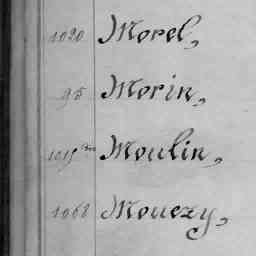 1020 Morel,
95 Morin,
1015 bis Moulin,
1068 Mouezy,